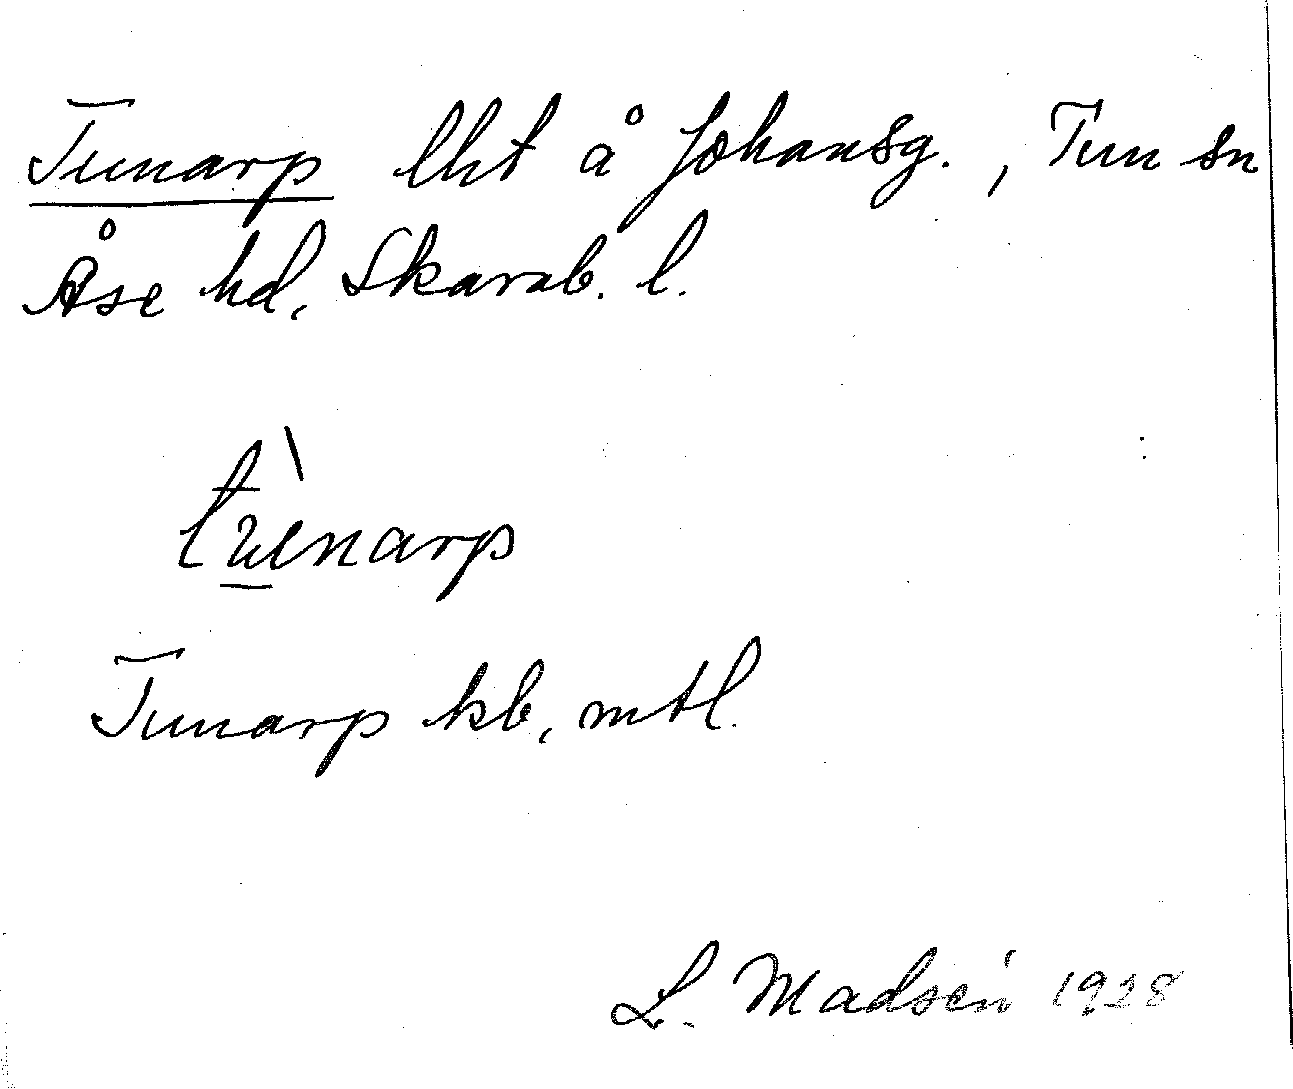 Tunarp lht å Johansg., Tun sn
Åse hd, Skarab. l.
Tunarp kb, mtl.
L. Madsén 1928